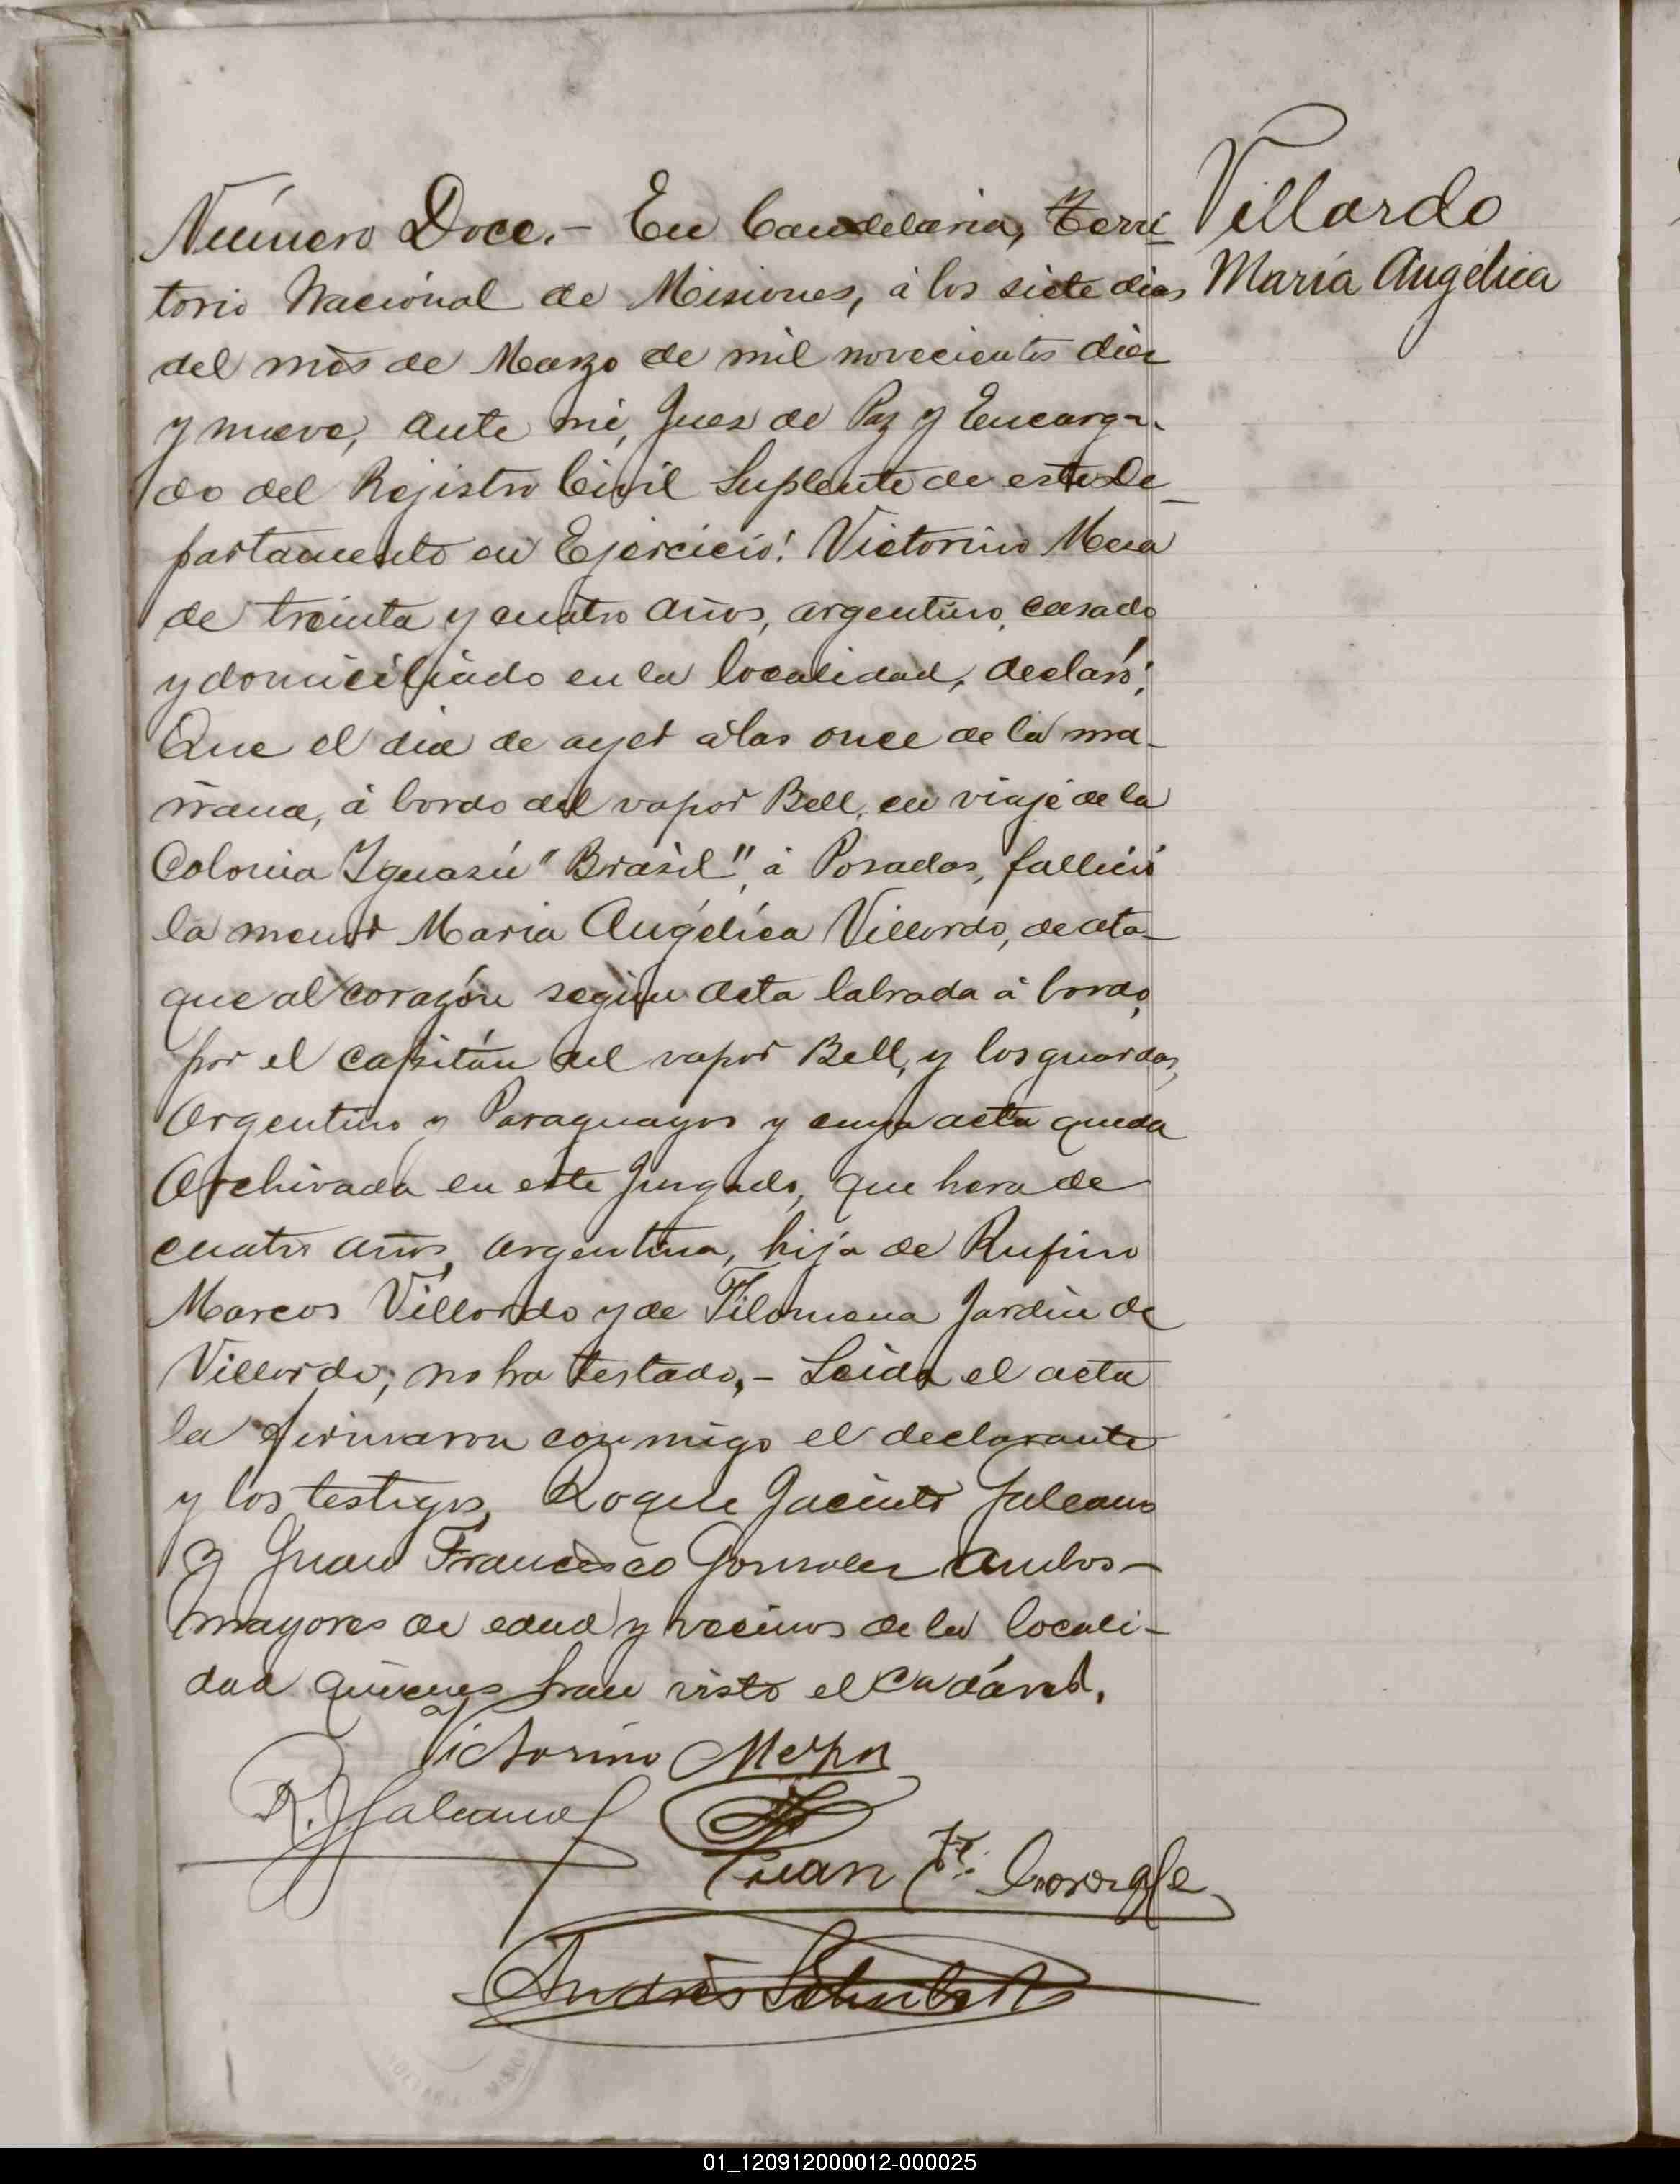 Villardo
María Angélica
Número Doce.- En Candelaria, Terri-
torio Nacional de Misiones, á los siete dias
del mes de Marzo de mil novecientos diez
y nueve, ante mi, Juez de Paz y Encarga-
do del Rejistro Civil Suplente de este De-
partamento en Ejercicio: Victorino Meza
de treinta y cuatro años, argentino, casado
y domiciliado en la localidad, declaró:
Que el dia de ayer á las once de la ma-
ñana, á bordo del vapor Bell, en viaje de la
Colonia Iguazú "Brasil", á Posadas, falleció
la menor Maria Angélica Villordo, de ata-
que al corazón segun acta labrada á bordo,
por el capitán del vapor Bell, y los guardas,
Argentino y Paraguayos y cuya acta queda
Archivada en este Juzgado, que hera de
cuatro años, argentina, hija de Rufino
Marcos Villordo y de Filomena Jardin de
Villordo; no ha testado.- Leida el acta
la firmaron conmigo el declarante
y los testigos, Roque Jacinto Galeano
y Juan Francisco Gonzalez ambos-
mayores de edad y vecinos de la locali-
dad quienes han visto el cadáver.
Victorino Meza
R. J. Galeano
Juan Fr.
Andrés
01_120912000012-000025